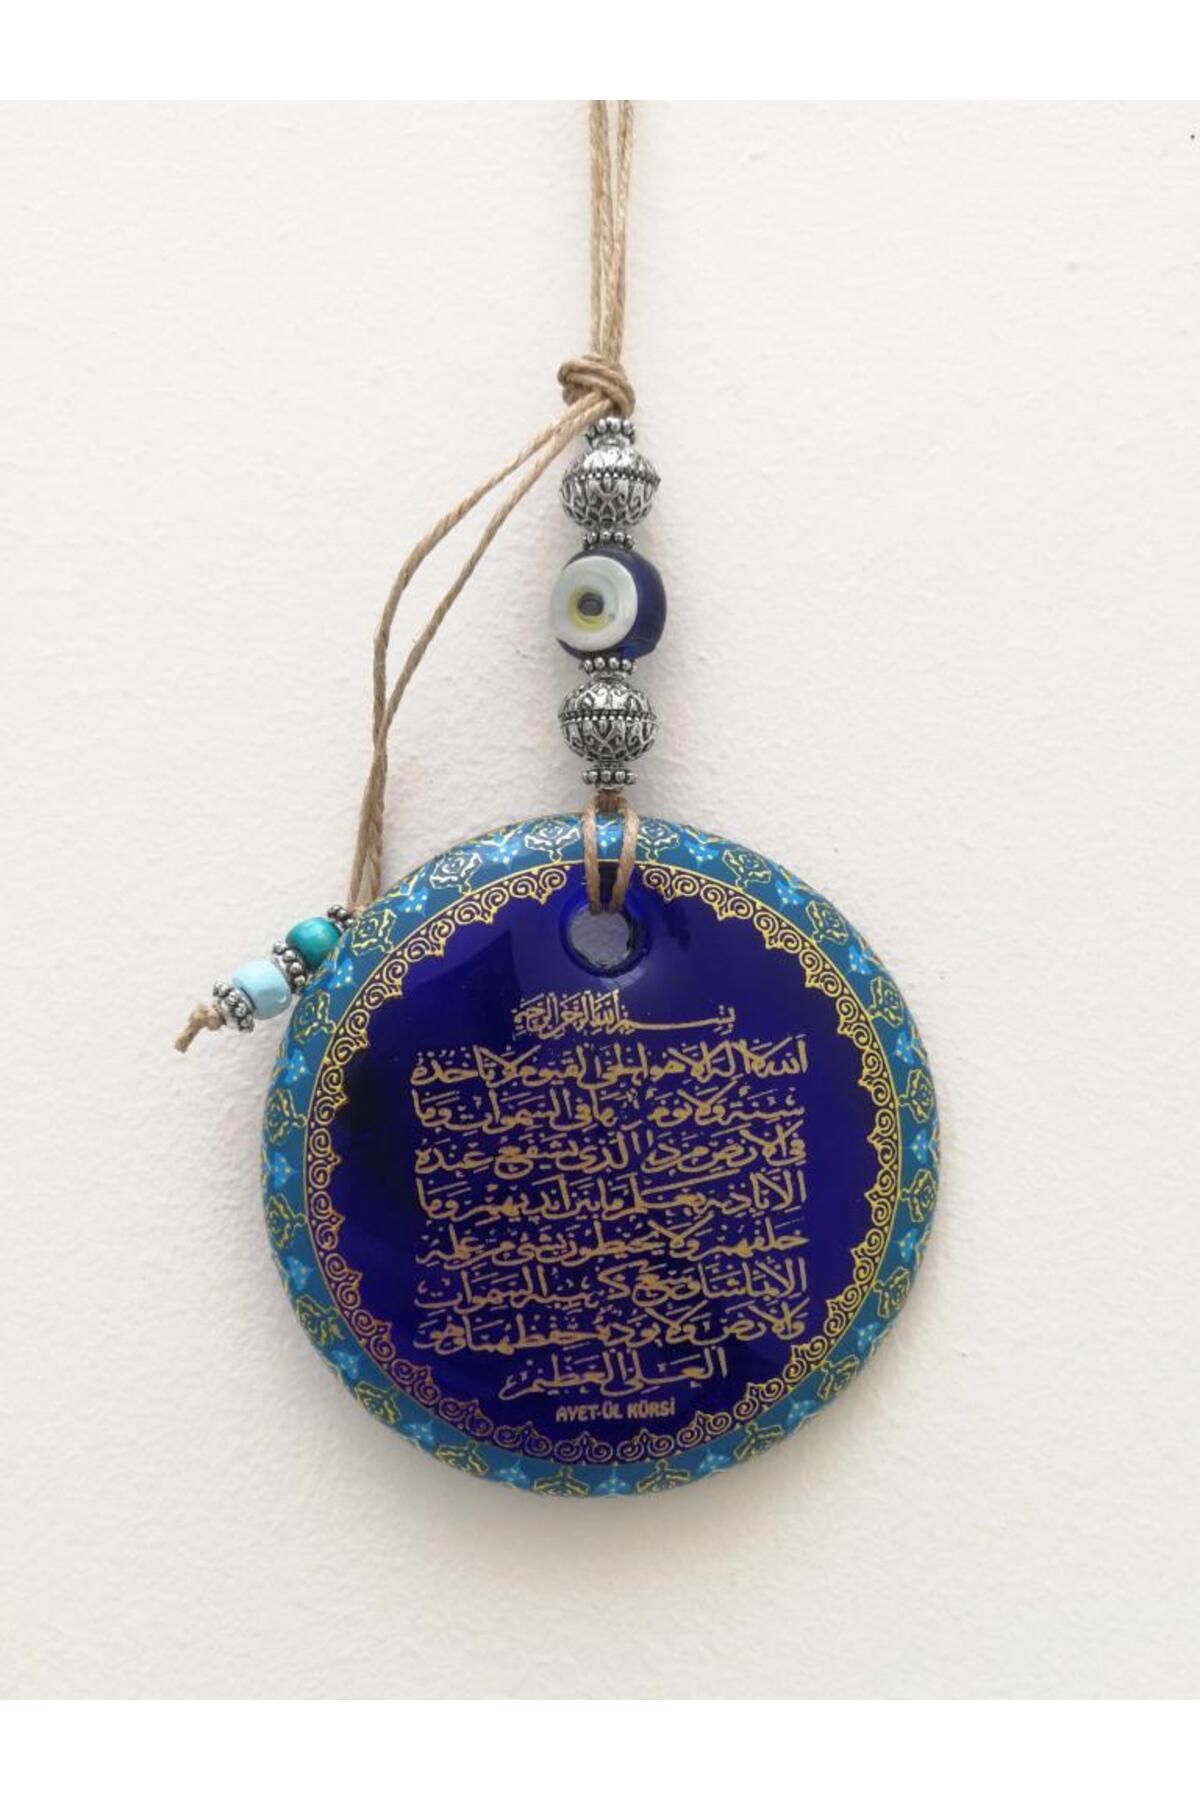 بسم الله الرحمن الرحيم
الله لا اله الا هو الحي القيوم لا تأخذه
سنة ولا نوم ما في السموات وما
في الارض من ذا الذي يشفع عنده
الا باذنه يعلم ما بين ايديهم وما
خلفهم ولا يحيطون بشئ من علمه
الا بما شاء وسع كرسيه السموات
والارض ولا يؤده حفظهما وهو
العلي العظيم
AYET-ÜL KÜRSİ